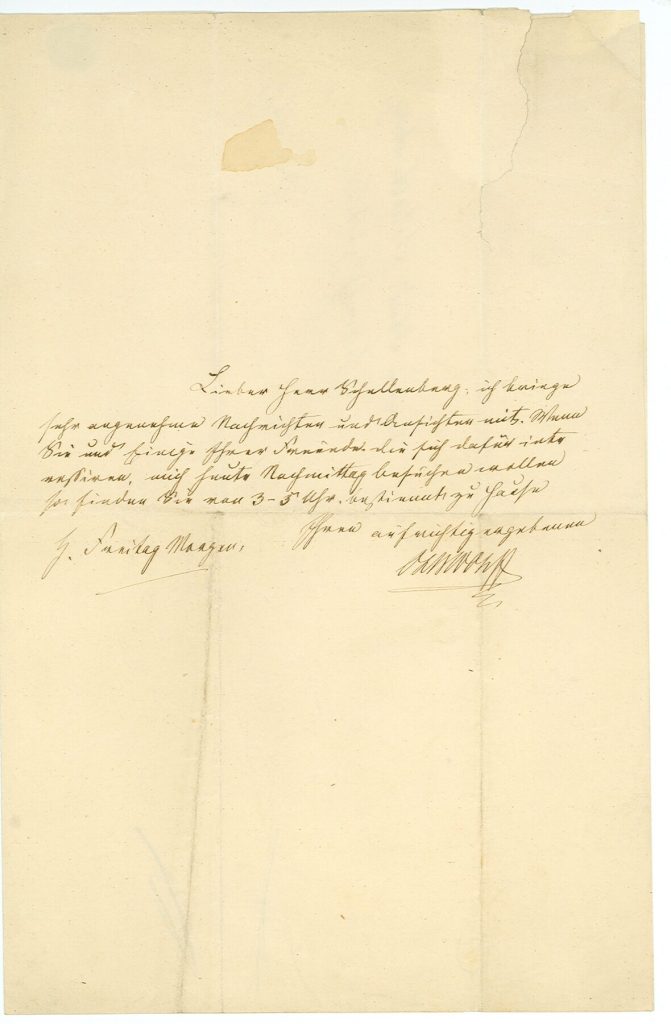 Lieber Herr Schellenberg, ich bringe
sehr angenehme Nachrichten und Ansichten mit. Wenn
Sie und Einige Ihrer Freunde die sich dafür inte
ressiren, mich heute Nachmittag besuchen wollen
so finden Sie von 3-5 Uhr. bestimmt zu Hause
Ihren aufrichtig ergebenen
H. Freitag Morgen.